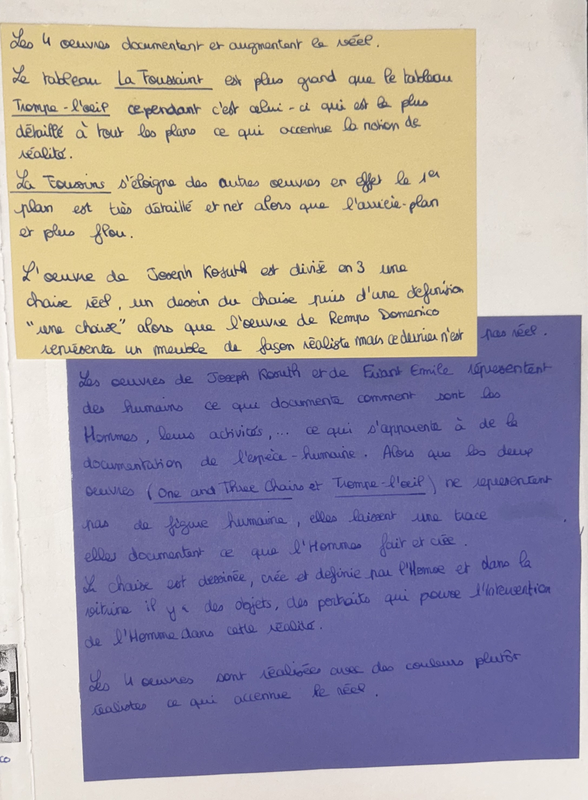 Les 4 oeuvres documentent et augmentent le réel.
Le tableau La Toussaint est plus grand que le tableau
Trompe-l'oeil cependant c'est celui-ci qui est le plus
détaillé à tout les plans ce qui accentue la notion de
réalité.
La Toussains s'éloigne des autres oeuvres en effet le 1er
plan est très détaillé et net alors que l'arrière-plan
et plus flou.
L'oeuvre de Joseph Kosuth est divisé en 3 une
chaise réel, un dessin du chaise puis d'une definition
"une chaise" alors que l'oeuvre de Remps Domenico
représente un meuble de façon réaliste mais ce dernier n'est
pas réel.
Les oeuvres de Joseph Kosuth et de Friant Emile répresentent
des humains ce qui documente comment sont les
Hommes, leurs activités,... ce qui s'apparente à de la
documentation de l'espèce-humaine. Alors que les deux
oeuvres (One and Three Chairs et Trompe-l'oeil) ne representent
pas de figure humaine, elles laissent une trace
elles documentent ce que l'Hommes fait et crée.
La chaise est dessinée, crée et definie par l'Homme et dans la
vitrine il y a des objets, des portraits qui prouve l'intervention
de l'Homme dans cette réalité.
Les 4 oeuvres sont réalisées avec des couleurs plutôt
réalistes ce qui accennue le réel.
co